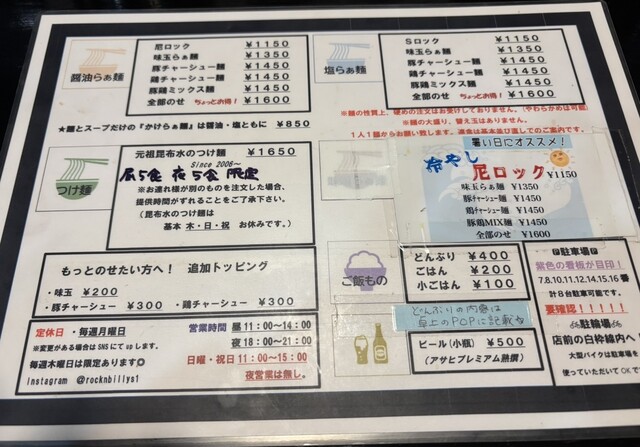 醤油らぁ麺
尼ロック ¥1150
味玉らぁ麺 ¥1350
豚チャーシュー麺 ¥1450
鶏チャーシュー麺 ¥1450
豚鶏ミックス麺 ¥1450
全部のせ ちょっとお得! ¥1600
塩らぁ麺
Sロック ¥1150
味玉らぁ麺 ¥1350
豚チャーシュー麺 ¥1450
鶏チャーシュー麺 ¥1450
豚鶏ミックス麺 ¥1450
全部のせ ちょっとお得! ¥1600
★麺とスープだけの『かけらぁ麺』は醤油・塩ともに ¥850
※麺の性質上、硬めの注文はお受けしておりません。(やわらかめは可能)
※麺の大盛り、替え玉はありません。
1人1麺からお願い致します。
つけ麺
元祖昆布水のつけ麺 ¥1650
Since 2006~
昼5食 夜5食 限定
※お連れ様が別のものを注文した場合、
提供時間がずれることをご了承下さい。
(昆布水のつけ麺は
基本 木・日・祝 お休みです。)
暑い日にオススメ!
冷やし
尼ロック ¥1150
味玉らぁ麺 ¥1350
豚チャーシュー麺 ¥1450
鶏チャーシュー麺 ¥1450
豚鶏MIX麺 ¥1450
全部のせ ¥1600
もっとのせたい方へ! 追加トッピング
・味玉 ¥200
・豚チャーシュー ¥300 ・鶏チャーシュー ¥300
ご飯もの
どんぶり ¥400
ごはん ¥200
小ごはん ¥100
どんぶりの内容は
卓上のPOPに記載
ビール(小瓶) ¥500
(アサヒプレミアム熟撰)
駐車場
紫色の看板が目印!
7,8,10,11,12,14,15,16番
計8台駐車可能です。
要確認!!!!!
駐輪場
店前の白枠線内へ
大型バイクは駐車場を
使っていただいてOKで
定休日・毎週月曜日
※変更がある場合はSNSにてupします。
毎週木曜日は限定あります
Instagram @rocknbillys1
営業時間 昼11:00~14:00
夜18:00~21:00
日曜・祝日11:00~15:00
夜営業は無し。